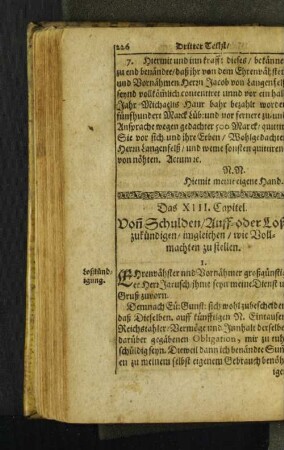 226 Dritter Theil/
7. Hiermit und inn krafft dieses / bekänne
zu end benändter / daß ihr von dem Ehrenvähsten
und Vornähmen Herrn Jacob von Langenfelß
seynd vollkömlich contentiret unnd vor ein halb
Jahr Michaelis Haur bahr bezahlt worden
fünffhundert Marck Lüb: und vor fernere zu-und
Ansprache wegen gedachter 500 Marck / quitti
Sie vor sich und ihre Erben / Wohlgedachter
Herrn Langenfelß / und weme sonsten quittiren
von nöhten. Actum ꝛc.
N.N.
Hiemit meine eigene Hand.
Das XIII. Capitel.
Von Schulden / Auff- oder Loß
zukündigen / imgleichen / wie Voll-
machten zu stellen.
1.
Loßkün-
digung.
EHrenvähster und Vornähmer großgünsti-
ger Herr Jarusch / ihme seyn meine Dienst u
Gruß zuvorn.
Demnach Eü: Gunst: sich wohl zubescheiden
daß Dieselben, auff künfftigen N. Eintausen
Reichsthaler / Vermöge und Innhalt derselbe
darüber gegäbenen Obligation, mir zu
schüldig seyn. Dieweil dann ich benändte Sum
en zu meinem selbst eigenem Gebrauch benöh